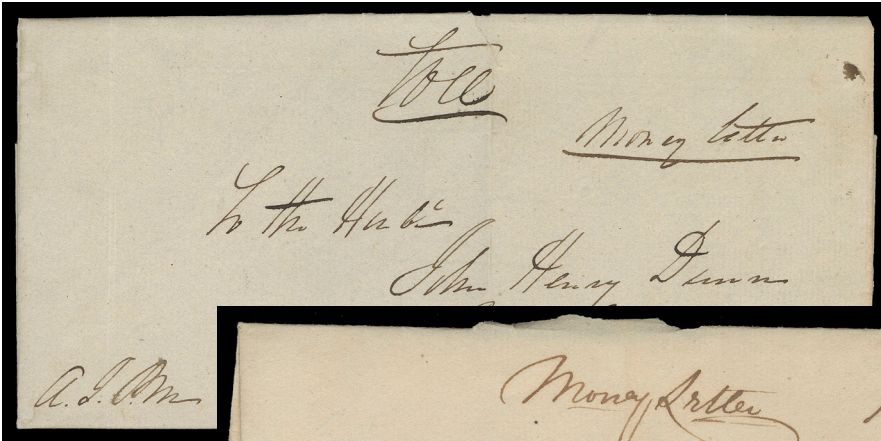 Free
Money Letter
To the Honble
John Henry Dunn
A. J.
Money Letter